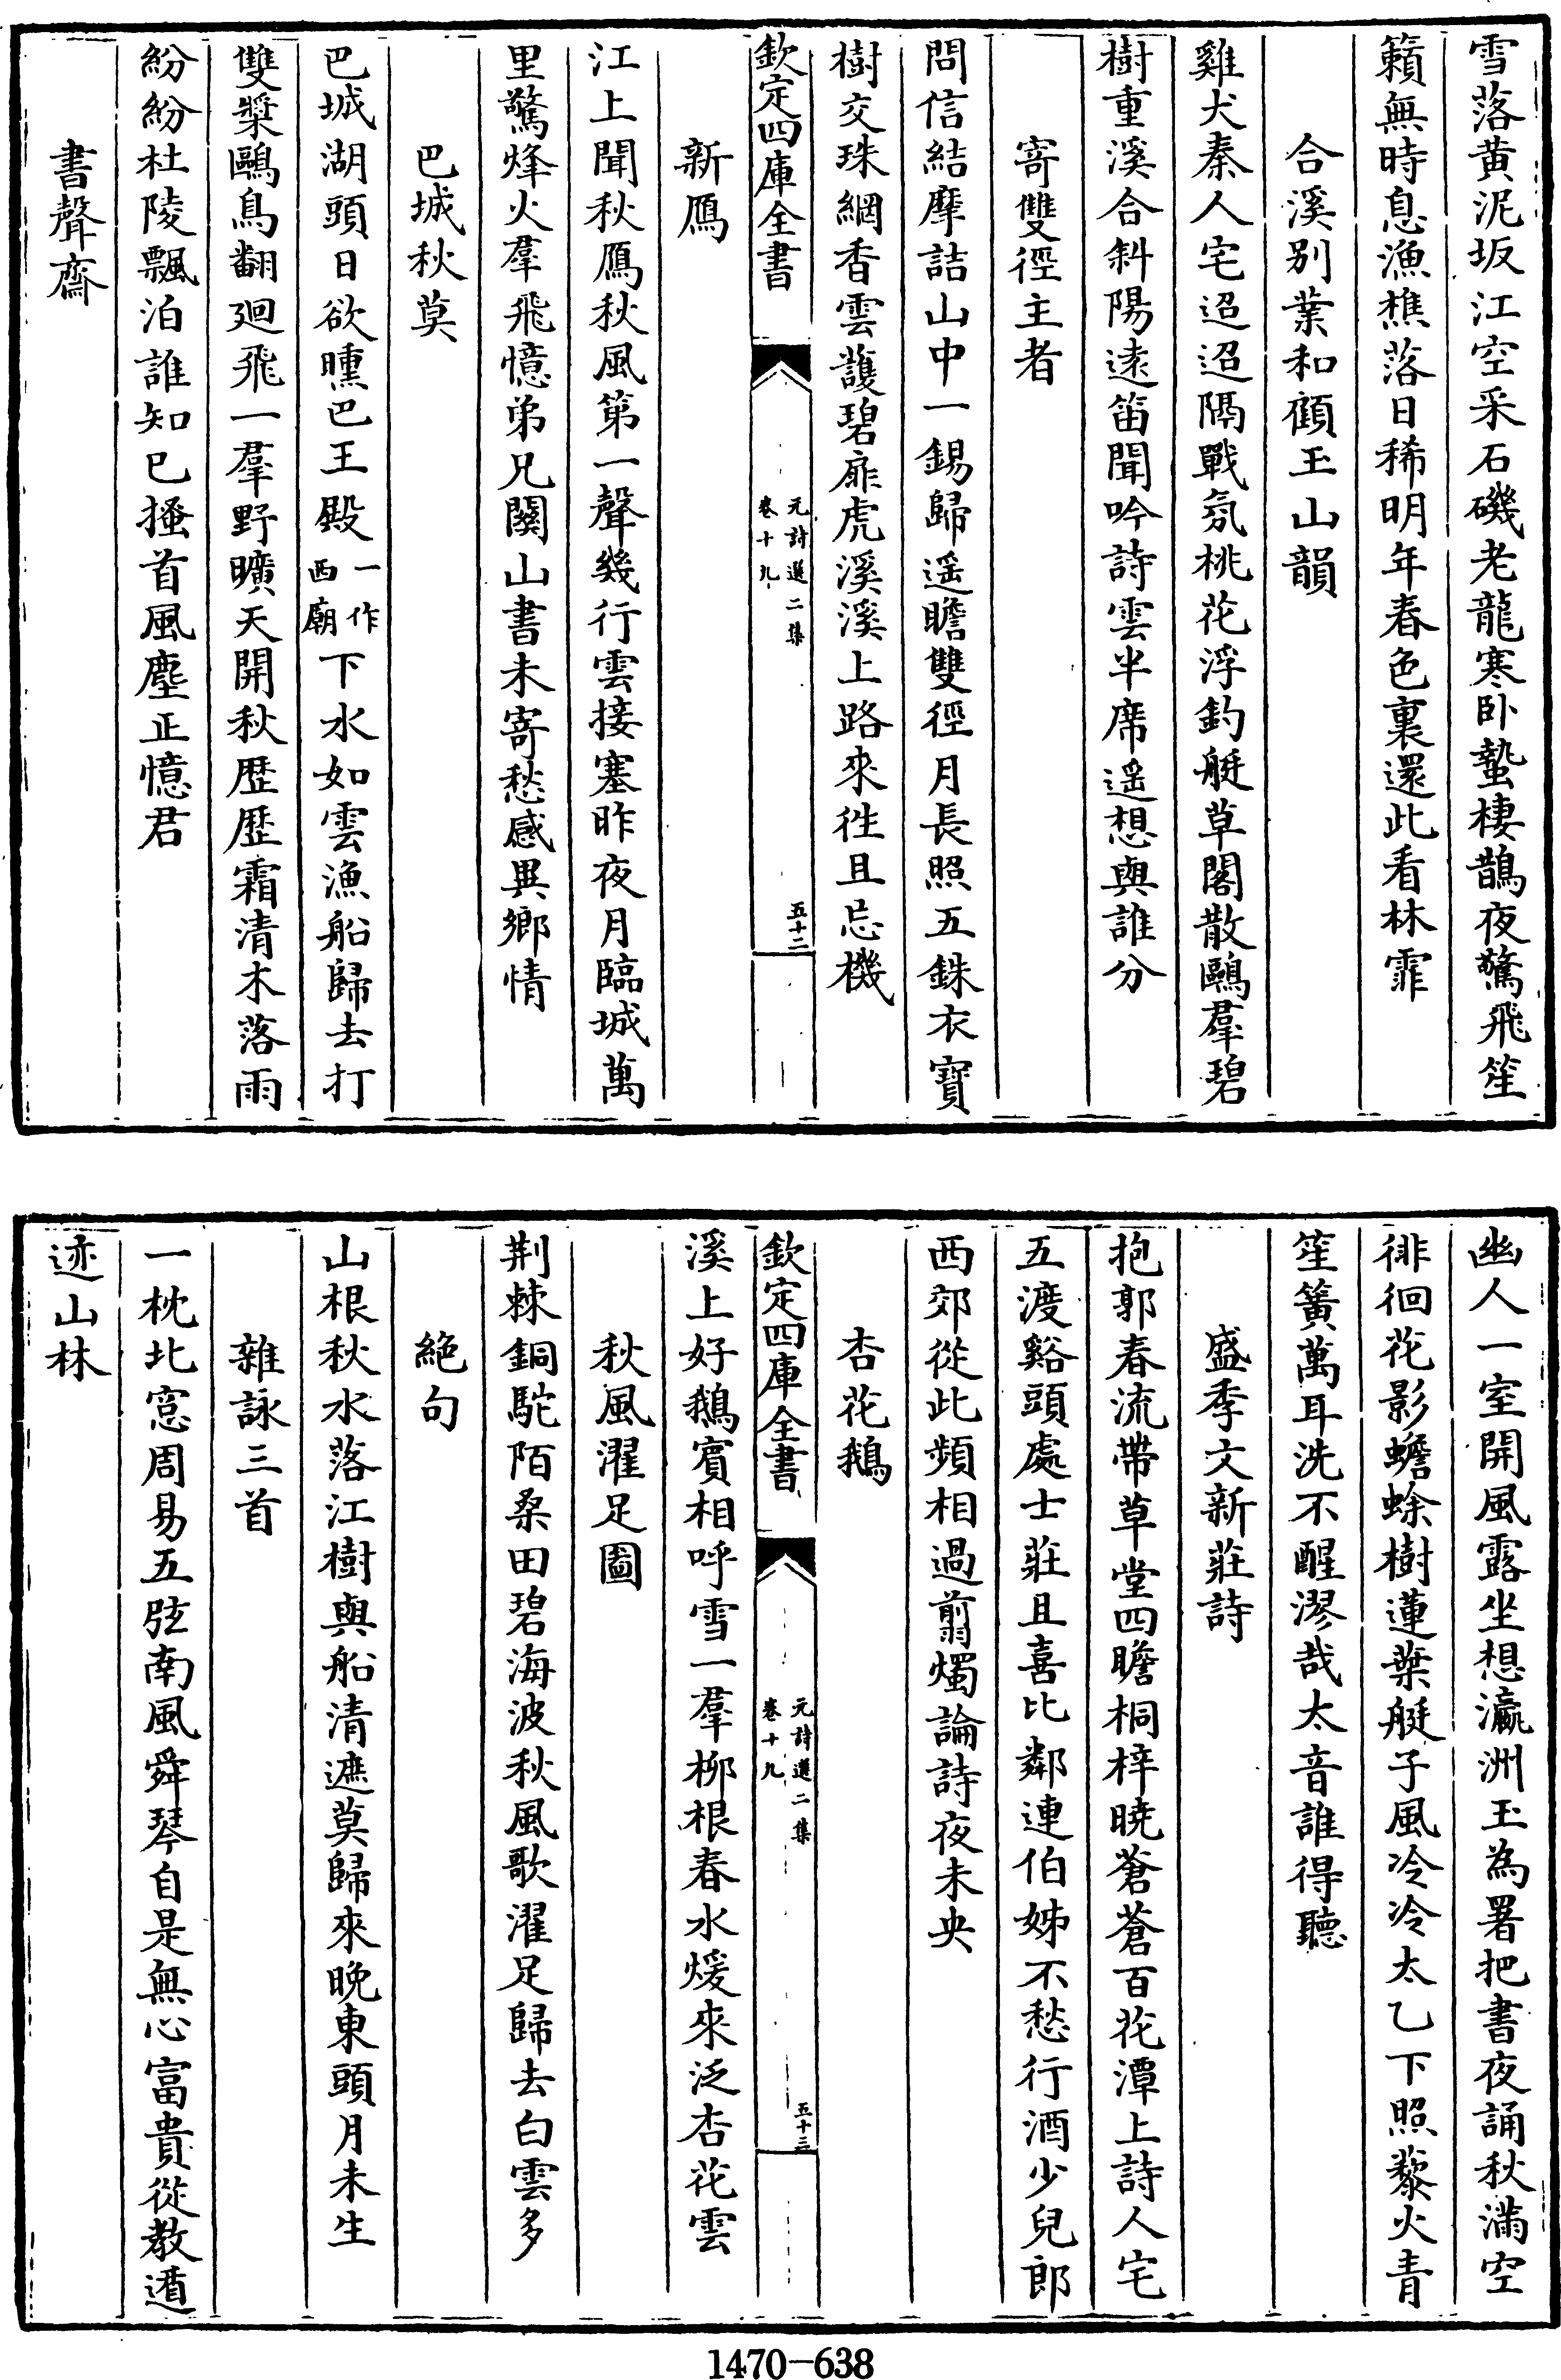 雪落黄泥坂江空采石磯老龍寒卧蟄棲鵲夜驚飛笙
籟無時息漁樵落日稀明年春色裏還此看林霏
合溪别業和顧玉山韻
雞犬秦人宅迢迢隔戰氛桃花浮釣艇草閣散鷗羣碧
樹重溪合斜陽遠笛聞吟詩雲半席遥想與誰分
寄雙徑主者
問信結摩詰山中一錫歸遥瞻雙徑月長照五銖衣寶
樹交珠網香雲護碧扉虎溪溪上路來徃且忘機
欽定四庫全書
元詩選二集
卷十九
五十二
新鴈
江上聞秋鴈秋風第一聲幾行雲接塞昨夜月臨城萬
里驚烽火羣飛憶弟兄關山書未寄愁感異鄉情
巴城秋莫
巴城湖頭日欲曛巴王殿一作西廟下水如雲漁船歸去打
雙槳鷗鳥翻廻飛一羣野曠天開秋歴歴霜清木落雨
紛紛杜陵飄泊誰知已搔首風塵正憶君
書聲齋
幽人一室開風露坐想瀛洲玉為署把書夜誦秋滿空
徘徊花影蟾蜍樹蓮葉艇子風冷冷太乙下照藜火青
笙簧萬耳洗不醒漻哉太音誰得聽
盛季文新莊詩
抱郭春流帶草堂四瞻桐梓曉蒼蒼百花潭上詩人宅
五渡谿頭處士莊且喜比鄰連伯姊不愁行酒少兒郎
西郊從此頻相過翦燭論詩夜未央
杏花鵝
欽定四庫全書
元詩選二集
卷十九
五十三
溪上好鵝賓相呼雪一羣栁根春水煖來泛杏花雲
秋風濯足圖
荆棘銅駝陌桑田碧海波秋風歌濯足歸去白雲多
絶句
山根秋水落江樹與船清遮莫歸來晚東頭月未生
雜詠三首
一枕北窓周易五弦南風舜琴自是無心富貴從教遁
迹山林
1470-638